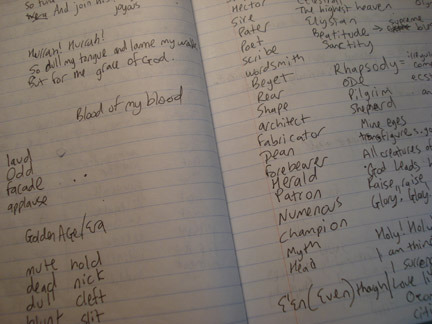 And join his
joyous
Hurrah! Hurrah!
So dull my tongue and lame my
But for me grace of God.
Blood of my blood
laud
Odd
facade
applause
Golden Age/Era
mute hold
dead nick
dull cleft
blunt slit
Hector
Sire
Pater
Poet
scribe
wordsmith
Beget
Rear
Shape
architect
Fabricator
Dean
Forebearer
Herald
Patron
Numenous
Champion
Myth
Head
E'en (Even) though
The highest heaven
Elysian
Beatitude → supreme
Sanctity
Rhapsody =
ODE
Pilgrim
Shepherd
Mine eyes
All creatures o
God leads
Raise, raise
Glory, Glory
Holy! Holy
I am thin
I
Love li